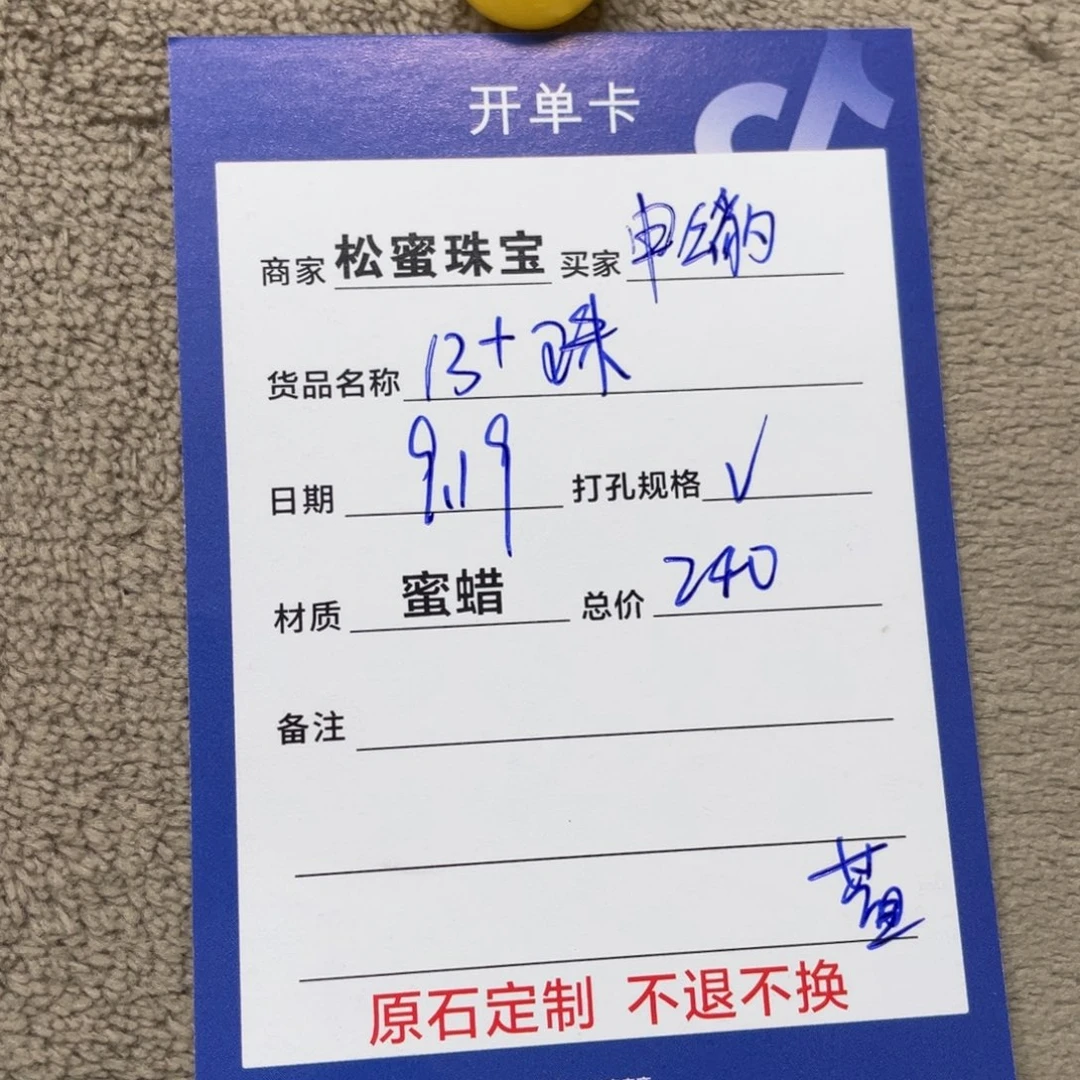 开单卡
商家 松蜜珠宝 买家 申
货品名称 13+ 珠
日期 9.19 打孔规格 √
材质 蜜蜡 总价 240
备注
原石定制 不退不换